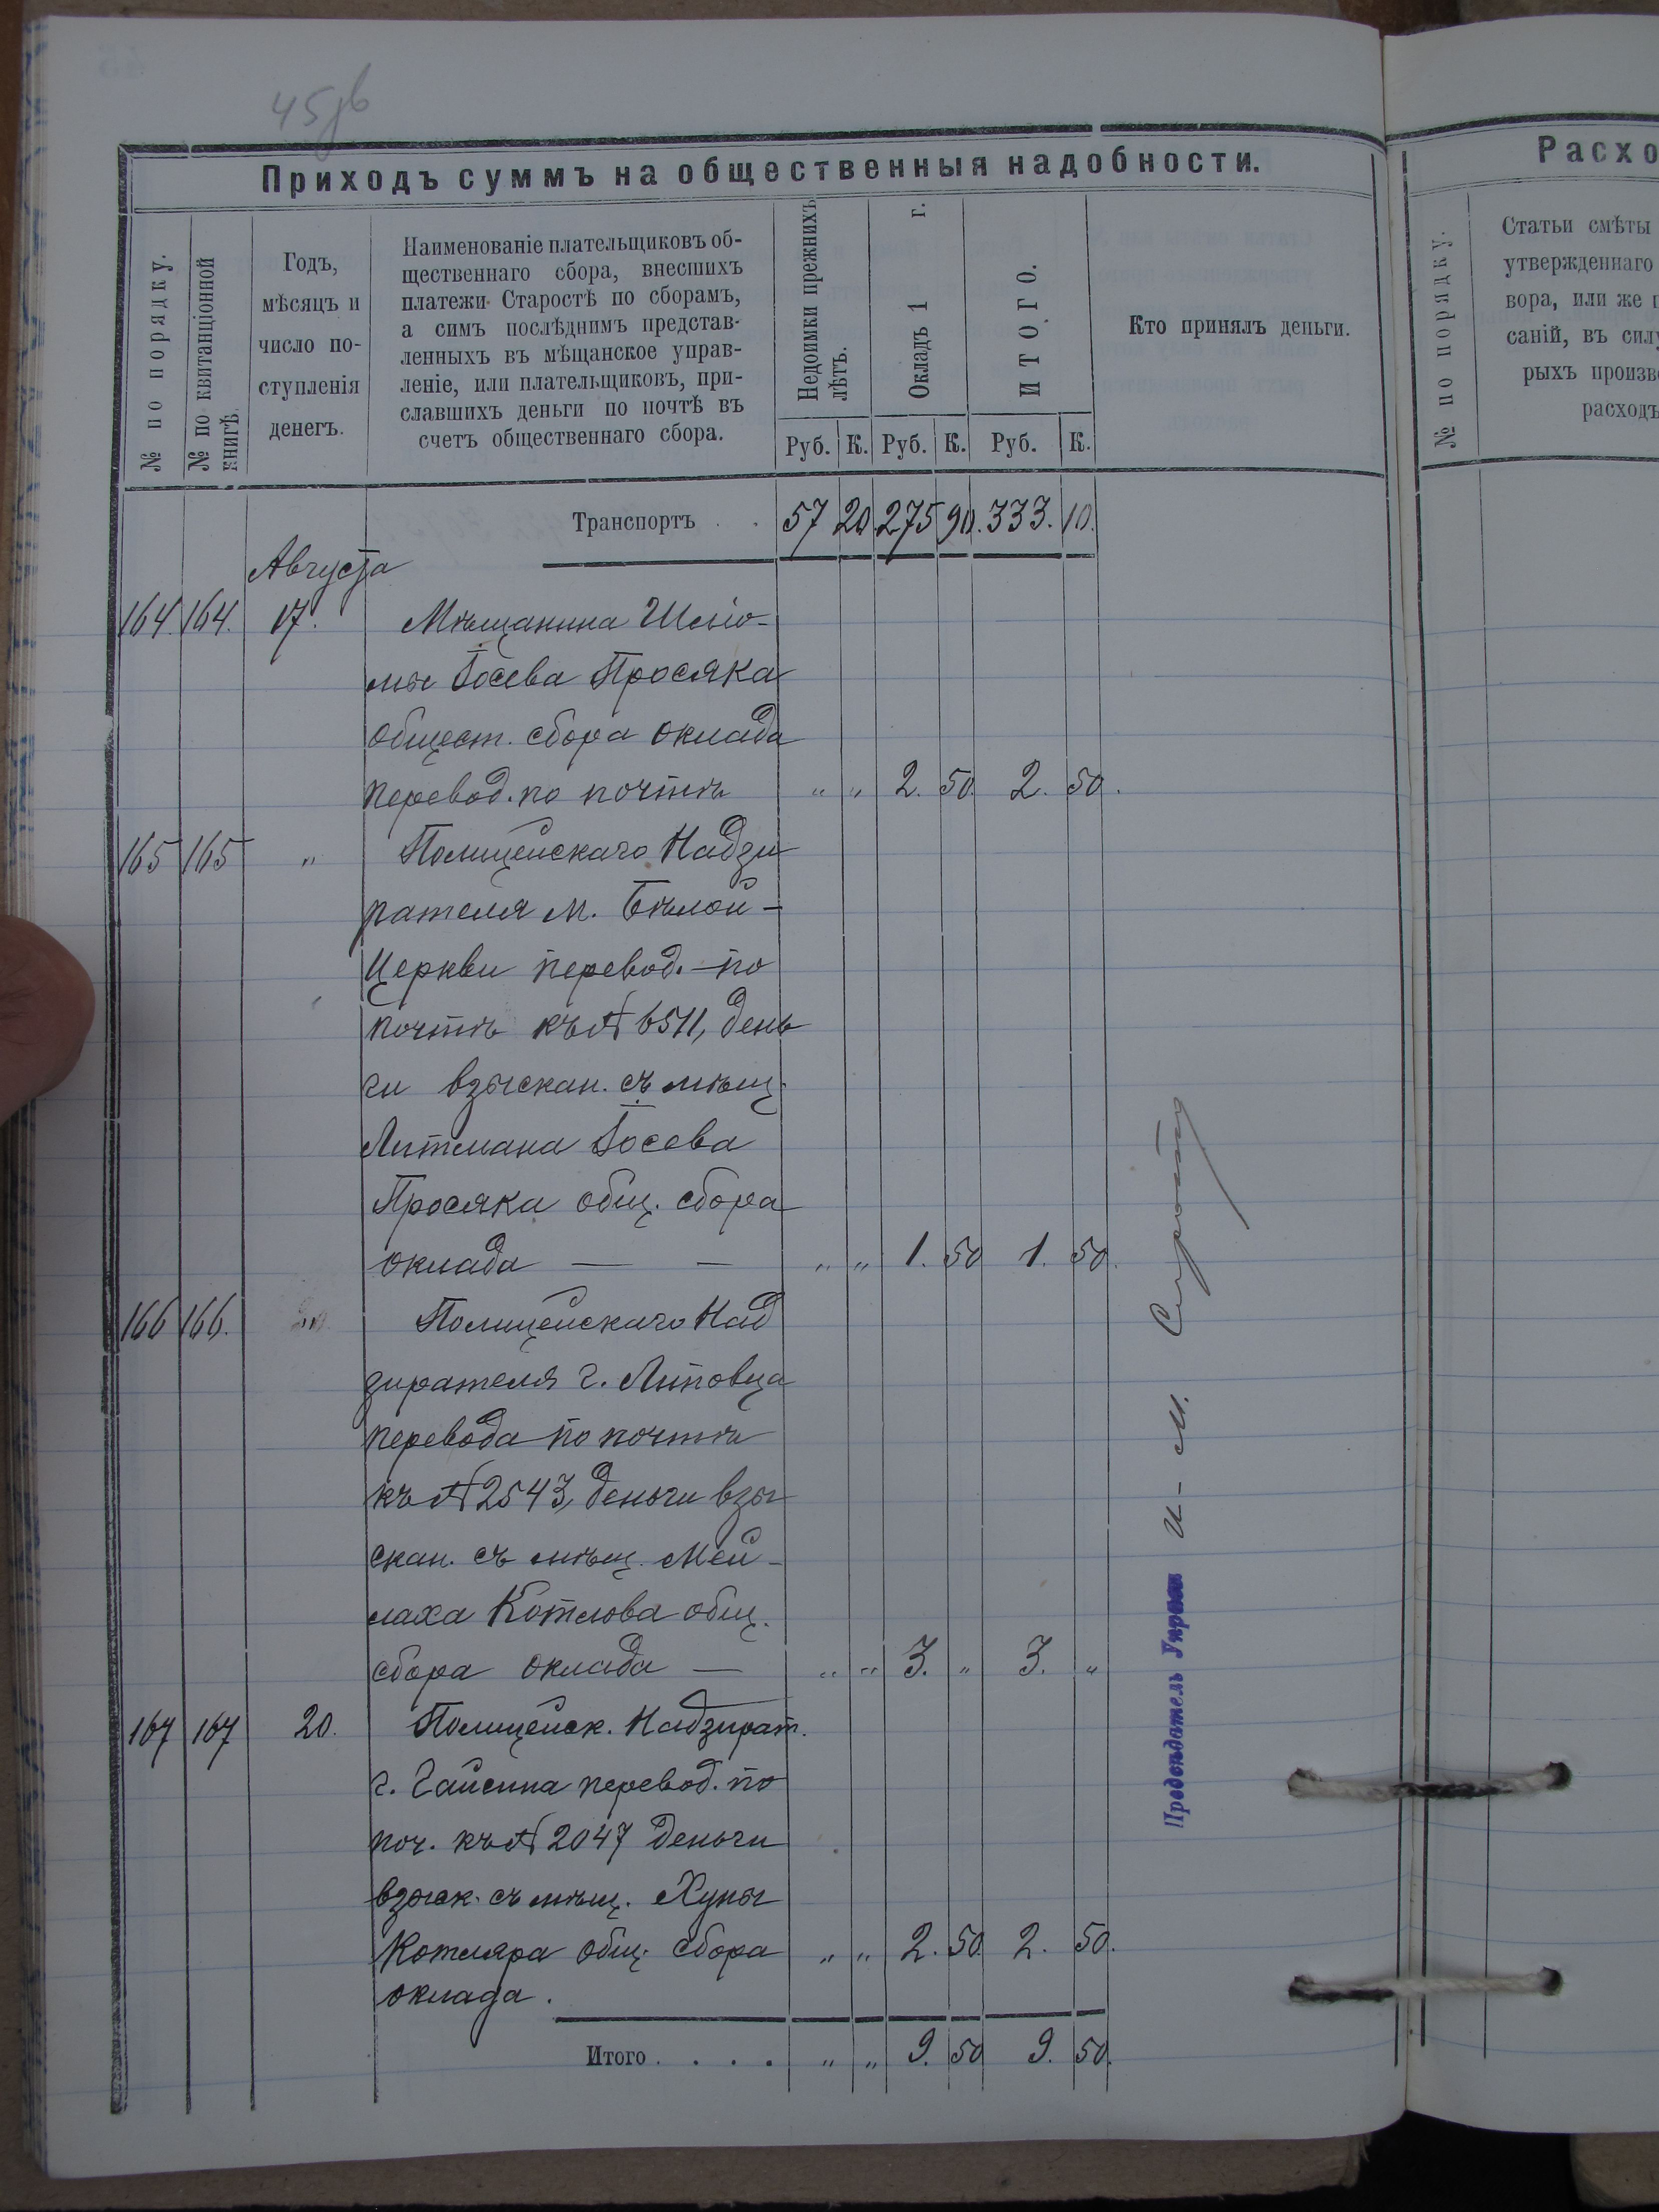 45 зв
Приходъ суммъ на общественныя надобности.
№ по порядку.
№ по квитанціонной
книгѣ.
Годъ,
мѣсяцъ и
число по-
ступленія
денегъ.
Наименованіе плательщиковъ об-
щественнаго сбора, внесшихъ
платежи Старостѣ по сборамъ,
а симъ послѣднимъ представ-
ленныхъ въ мѣщанское управ-
леніе, или плательщиковъ, при-
славшихъ деньги по почтѣ въ
счетъ общественнаго сбора.
Недоимки прежнихъ
лѣтъ.
Окладъ 1 г.
ИТОГО.
Кто принялъ деньги.
Руб. К. Руб. К. Руб. К.
Транспортъ . . 57 20 275 90. 333. 10.
Августа
164. 164. 17. Мѣщанина Шліо-
мы Іосева Просяка
общест. сбора оклада
перевод. по почтѣ " " 2. 50. 2. 50.
165 165 " Полицейскаго Надзи
рателя м. Бѣлой-
Церкви перевод. по
почтѣ къ № 6511, день
ги взыскан. съ мѣщ.
Литмана Іосева
Просяка общ. сбора
оклада — — " " 1. 50 1. 50.
166 166. Полицейскаго Над
зирателя г. Липовца
перевода по почтѣ
къ № 2543, деньги взы
скан. съ мѣщ. Мей-
лаха Котлова общ.
сбора оклада — " " 3. " 3. "
167 167 20. Полицейск. Надзират.
г. Гайсина перевод. по
поч. къ № 2047 деньги
взыск. съ мѣщ. Хуны
Котляра общ. сбора " " 2. 50 2. 50.
оклада.
Итого . . . . " " 9. 50 9. 50.
Предсѣдатель И- М.
Расхо
№ по порядку.
Статьи смѣты
утвержденнаго
вора, или же п
саній, въ силу
рыхъ произве
расходъ